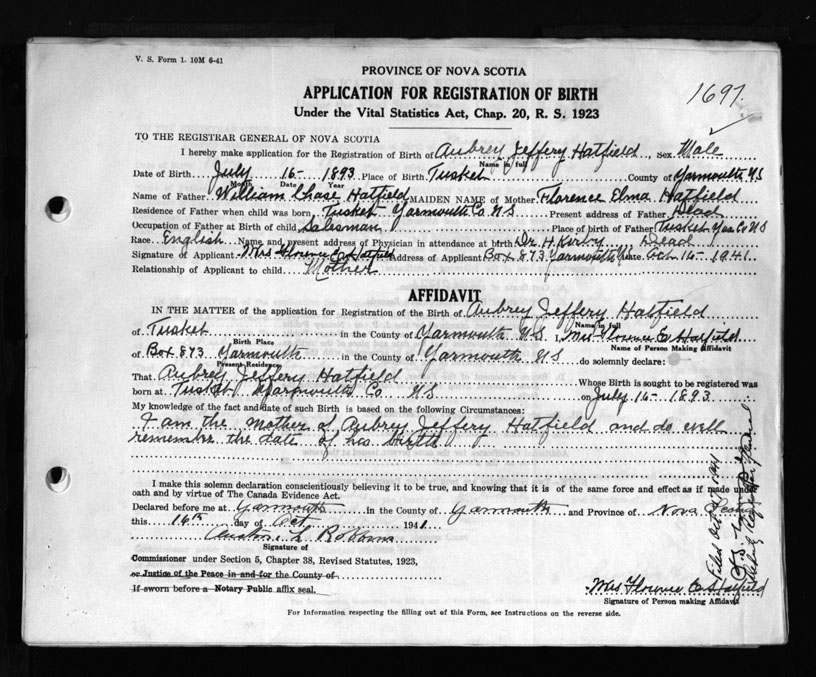 V. S. Form 1. 10M 6-41
PROVINCE OF NOVA SCOTIA
APPLICATION FOR REGISTRATION OF BIRTH
Under the Vital Statistics Act, Chap. 20, R. S. 1923
1697
TO THE REGISTRAR GENERAL OF NOVA SCOTIA
I hereby make application for the Registration of Birth of Aubrey Jeffery Hatfield, Sex Male
Name in full
Date of Birth July 16 - 1893 Place of Birth Tusket County of Yarmouth N S
Month Date Year
Name of Father William Chase Hatfield MAIDEN NAME of Mother Florence Elma Hatfield
Residence of Father when child was born Tusket Yarmouth Co N S Present address of Father Dead
Occupation of Father at Birth of child Salesman Place of birth of Father Tusket Yar Co N S
Race English Name and present address of Physician in attendance at birth Dr H. Kirby Dead
Signature of Applicant Mrs Florence Hatfield Address of Applicant Box 873 Yarmouth N S Date Oct 16 - 1941
Relationship of Applicant to child Mother
AFFIDAVIT
IN THE MATTER of the application for Registration of the Birth of Aubrey Jeffery Hatfield
Name in full
of Tusket in the County of Yarmouth N S I, Mrs Florence Hatfield
Birth Place Name of Person Making Affidavit
of Box 873 Yarmouth in the County of Yarmouth N S do solemnly declare:
Present Residence
That Aubrey Jeffery Hatfield Whose Birth is sought to be registered was
born at Tusket Yarmouth Co N S on July 16 - 1893
My knowledge of the fact and date of such Birth is based on the following Circumstances:
I am the Mother of Aubrey Jeffery Hatfield and do well
remember the date of his birth
I make this solemn declaration conscientiously believing it to be true, and knowing that it is of the same force and effect as if made under
oath and by virtue of The Canada Evidence Act.
Declared before me at Yarmouth in the County of Yarmouth and Province of Nova Scotia
this 16th day of Oct 1941
Signature of
Commissioner under Section 5, Chapter 38, Revised Statutes, 1923,
or Justice of the Peace in and for the County of
If sworn before a Notary Public affix seal.
Mrs Florence Hatfield
Signature of Person making Affidavit
For Information respecting the filling out of this Form, see Instructions on the reverse side.
Filed Oct 1941